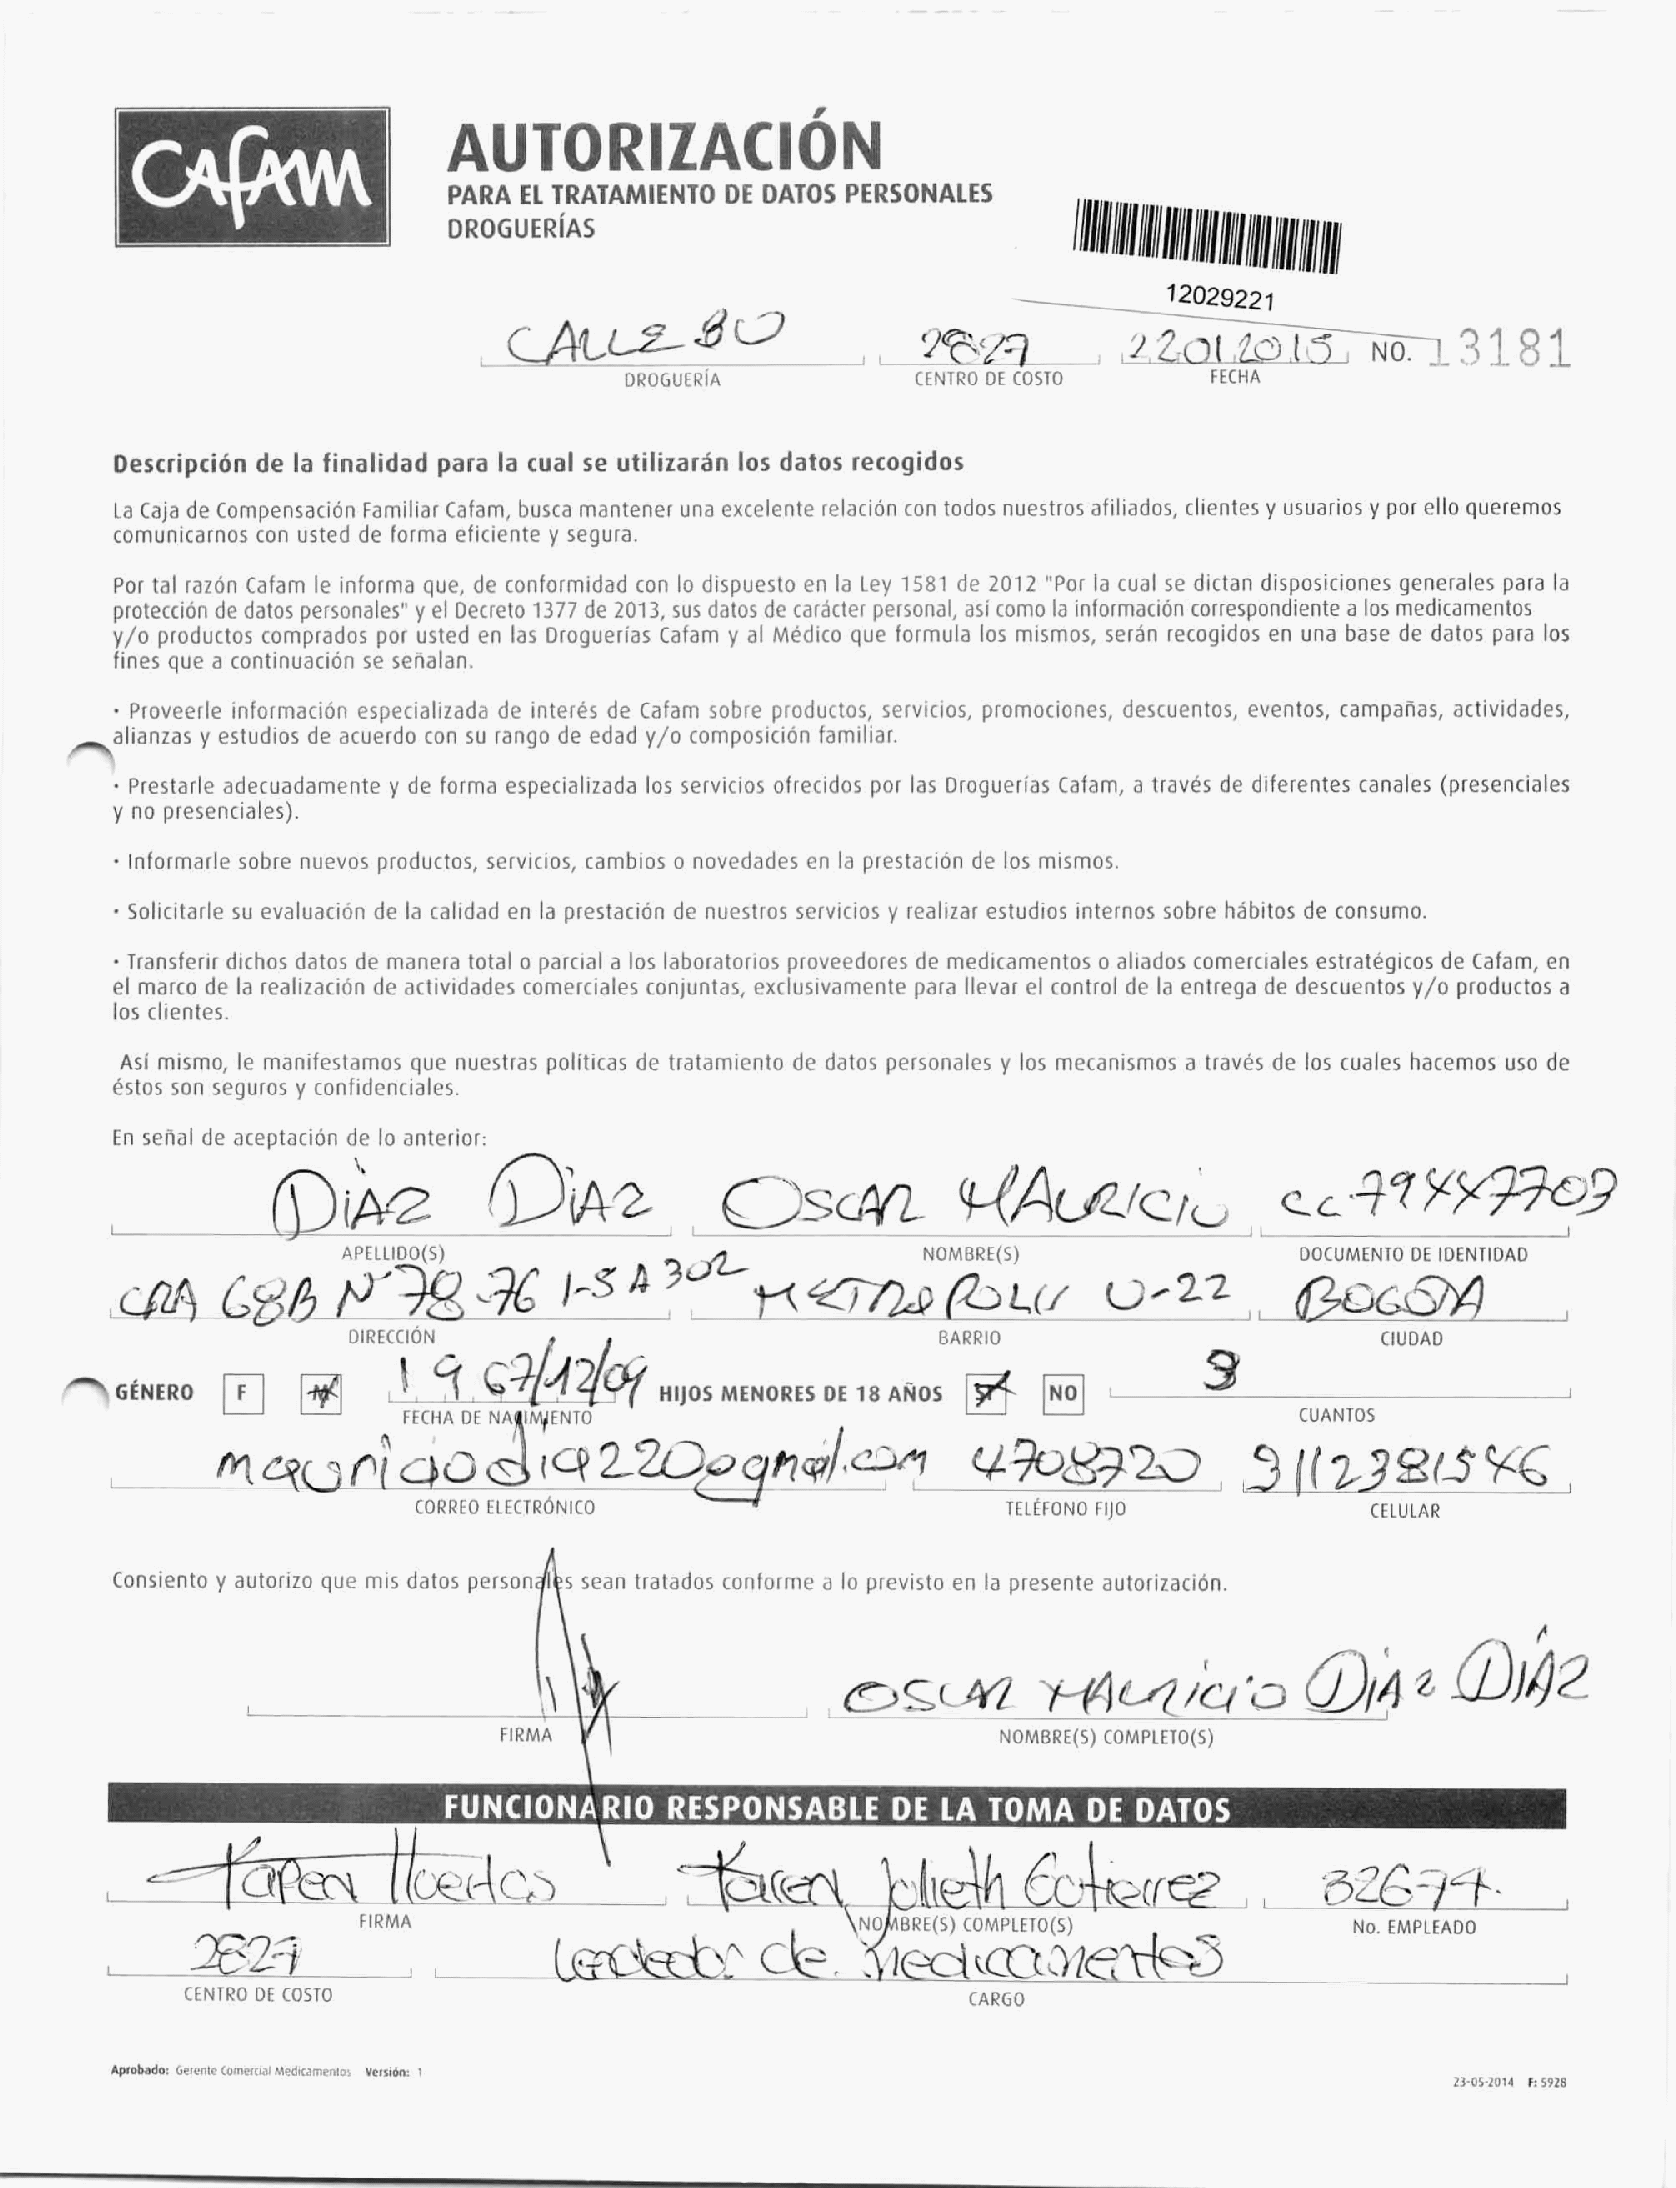 Cafam
AUTORIZACIÓN
PARA EL TRATAMIENTO DE DATOS PERSONALES
DROGUERÍAS
12029221
CALLE 80 2827 22012015 NO. 13181
DROGUERÍA CENTRO DE COSTO FECHA
Descripción de la finalidad para la cual se utilizarán los datos recogidos
La Caja de Compensación Familiar Cafam, busca mantener una excelente relación con todos nuestros afiliados, clientes y usuarios y por ello queremos
comunicarnos con usted de forma eficiente y segura.
Por tal razón Cafam le informa que, de conformidad con lo dispuesto en la Ley 1581 de 2012 "Por la cual se dictan disposiciones generales para la
protección de datos personales" y el Decreto 1377 de 2013, sus datos de carácter personal, así como la información correspondiente a los medicamentos
y/o productos comprados por usted en las Droguerías Cafam y al Médico que formula los mismos, serán recogidos en una base de datos para los
fines que a continuación se señalan.
· Proveerle información especializada de interés de Cafam sobre productos, servicios, promociones, descuentos, eventos, campañas, actividades,
alianzas y estudios de acuerdo con su rango de edad y/o composición familiar.
· Prestarle adecuadamente y de forma especializada los servicios ofrecidos por las Droguerías Cafam, a través de diferentes canales (presenciales
y no presenciales).
· Informarle sobre nuevos productos, servicios, cambios o novedades en la prestación de los mismos.
· Solicitarle su evaluación de la calidad en la prestación de nuestros servicios y realizar estudios internos sobre hábitos de consumo.
· Transferir dichos datos de manera total o parcial a los laboratorios proveedores de medicamentos o aliados comerciales estratégicos de Cafam, en
el marco de la realización de actividades comerciales conjuntas, exclusivamente para llevar el control de la entrega de descuentos y/o productos a
los clientes.
Así mismo, le manifestamos que nuestras políticas de tratamiento de datos personales y los mecanismos a través de los cuales hacemos uso de
éstos son seguros y confidenciales.
En señal de aceptación de lo anterior:
DíAZ DíAZ OSCAR MAURICIO cc.79447703
APELLIDO(S) NOMBRE(S) DOCUMENTO DE IDENTIDAD
CRA 68B N° 78-76 I-5 A 302 METROPOLIS U-22 BOGOTA
DIRECCIÓN BARRIO CIUDAD
GÉNERO F M 1967/12/09 HIJOS MENORES DE 18 AÑOS SI NO 3
FECHA DE NACIMIENTO CUANTOS
mauriciodia220@gmail.com 4708720 3112381546
CORREO ELECTRÓNICO TELÉFONO FIJO CELULAR
Consiento y autorizo que mis datos personales sean tratados conforme a lo previsto en la presente autorización.
OSCAR MAURICIO DíAZ DÍAZ
FIRMA NOMBRE(S) COMPLETO(S)
FUNCIONARIO RESPONSABLE DE LA TOMA DE DATOS
Karen Huertas Karen Julieth Gutierrez 32674.
FIRMA NOMBRE(S) COMPLETO(S) No. EMPLEADO
2827 de medicamentos
CENTRO DE COSTO CARGO
Aprobado: Gerente Comercial Medicamentos Versión: 1
23-05-2014 F: 5928